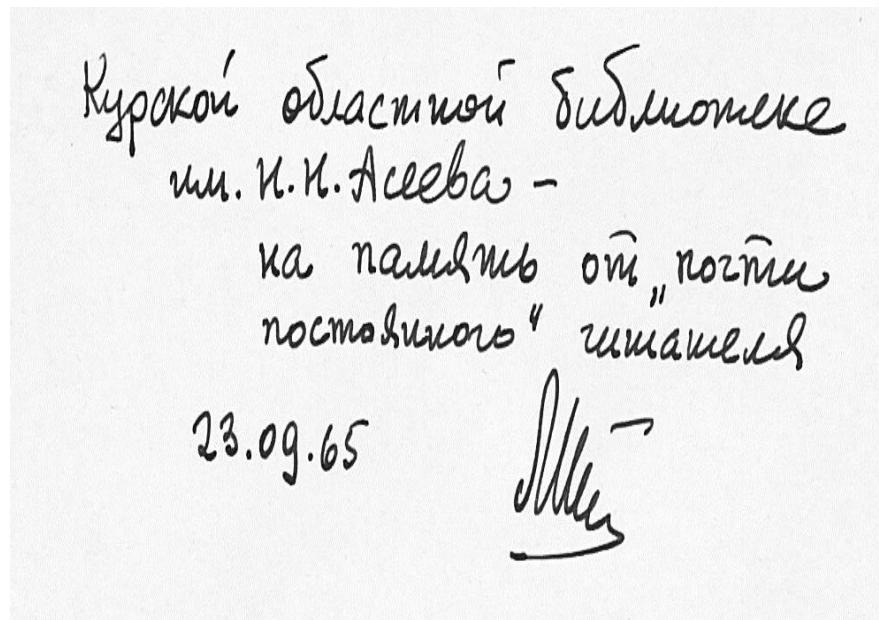 Курской областной библиотеке
им. Н.Н. Асеева –
на память от „почти
постоянного“ читателя
23.09.65